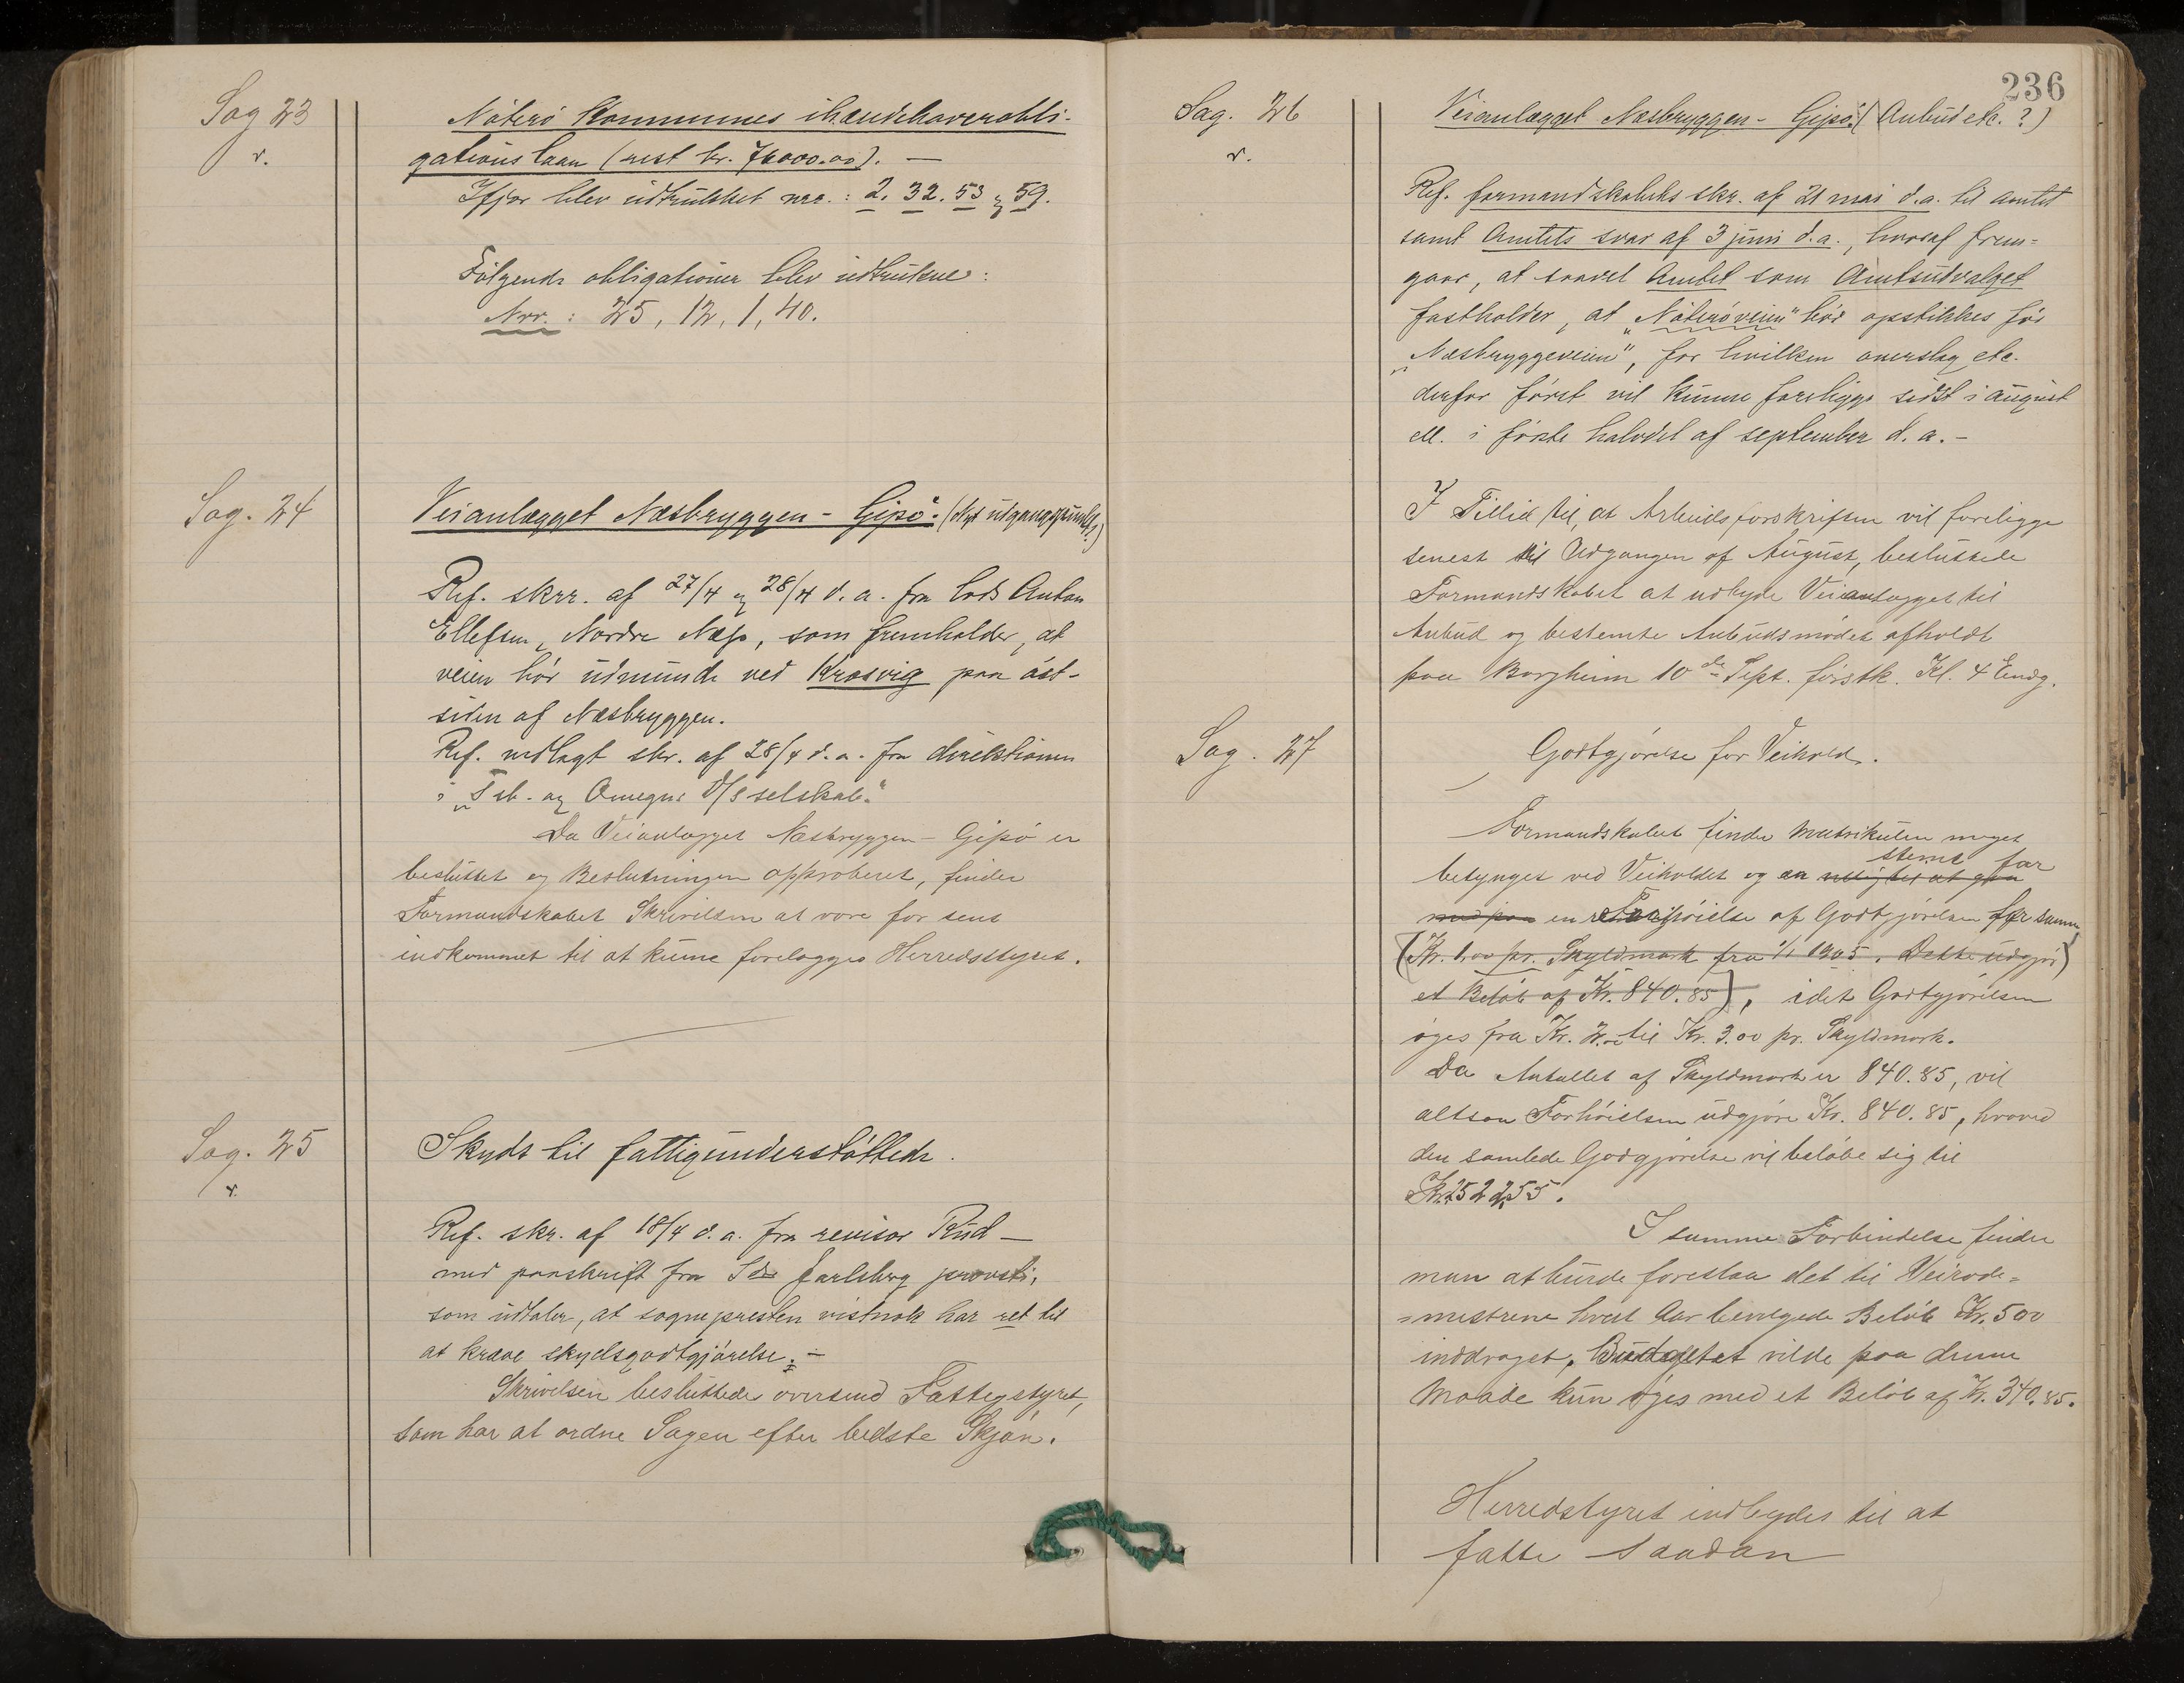 Sag 23
v.
Nöterö Kommunes ihændehaverobli-
gationslaan (rest kr. 76000.00). —
Ifjor blev udtrukket nrr.: 2. 32. 53 og 59.
Følgende obligationer blev udtrukne:
Nrr.: 25, 12, 1, 40.
Sag. 24
Veianlægget Næsbryggen - Gipö. (Nyt utgangspunkt?)
Ref. skrr. af 27/4 og 28/4 d. a. fra lods Anton
Ellefsen, Nordre Næss, som fremholder, at
veien bör udmunde ved Kræsvig paa öst-
siden af Næsbryggen.
Ref. vedlagt skr. af 28/4 d. a. fra direktionen
i „Tsb. og Omegns D/S selskab."
Da Veianlægget Næsbryggen - Gipö er
besluttet og Beslutningen approberet, finder
Formandskabet Skrivelsen at være for sent
indkommet til at kunne forelægges Herredsstyret.
Sag. 25
v.
Skyds til fattigunderstöttede.
Ref. skr. af 18/4 d. a. fra revisor Rud —
med paaskrift fra Sdr Jarlsberg provsti,
som udtaler, at sognepresten vistnok har ret til
at kræve skydsgodtgjörelse. —
Skrivelsen besluttedes oversend Fattigstyret,
som har at ordne Sagen efter bedste Skjön.
236
Sag. 26
v.
Veianlægget Næsbryggen - Gipö. (Anbud etc. ?)
Ref. formandskabets skr. af 21 mai d. a. til amtet
samt Amtets svar af 3 juni d. a., hvoraf frem=
gaar, at saavel Amtet som Amtsudvalget
fastholder, at „Nöteröveien" bör opstikkes för
„Næsbryggeveien", for hvilken overslag etc.
derfor först vil kunne foreligge sidst i august
ell. i förste halvdel af september d. a. -
I Tillid til, at Arbeidsforskriften vil foreligge
senest til Udgangen af August, besluttede
Formandskabet at udbyde Veianlægget til
Anbud og bestemte Anbudsmödet afholdt
paa Borgheim 10de Sept. förstk. Kl. 4 Emdg.
Sag. 27
Godtgjörelse for Veihold.
Formandskabet finder Matrikulen meget
stemt for
betynget ved Veiholdet og en
en Forhöielse af Godtgjörelsen for samme
(Kr. 1.00 pr. Skyldmark fra 1/1 1905. Dette udgjör)
et Belöb af Kr. 840.85), idet Godtgjörelsen
öges fra Kr. 2.00 til Kr. 3.00 pr. Skyldmark.
Da Antallet af Skyldmark er 840.85, vil
altsaa Forhöielsen udgjöre Kr. 840.85, hvorved
den samlede Godgjörelse vil belöbe sig til
Kr. 2522,55.
I samme Forbindelse finder
man at burde foreslaa det til Veirode=
=mestrene hvert Aar bevilgede Belöb Kr. 500
inddraget. Budgettet vilde paa denne
Maade kun öges med et Belöb af Kr. 340.85.
Herredstyret indbydes til at
fatte saadan